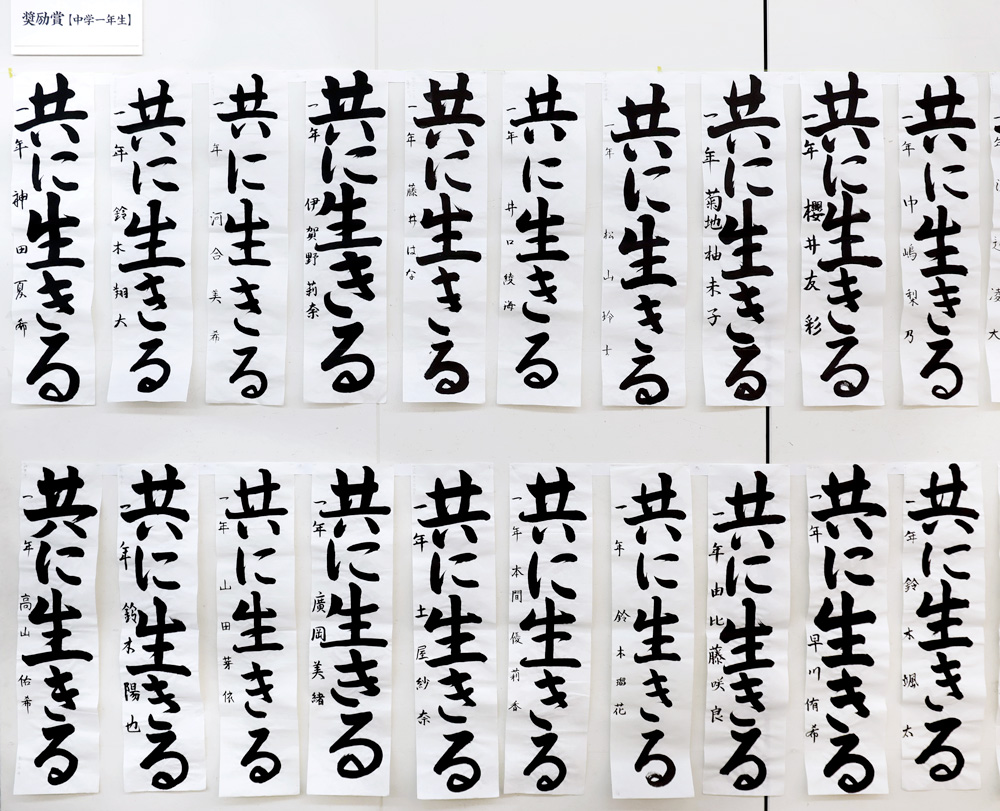 奨励賞【中学一年生】
共に生きる
一年 神田夏希
共に生きる
一年 鈴木翔大
共に生きる
一年 河合美希
共に生きる
一年 伊賀野莉奈
共に生きる
一年 藤井はな
共に生きる
一年 井口綾海
共に生きる
一年 松山玲士
共に生きる
一年 菊地柚未子
共に生きる
一年 櫻井友彩
共に生きる
一年 中嶋梨乃
共に生きる
一年 高山佑希
共に生きる
一年 鈴木陽也
共に生きる
一年 山田芽依
共に生きる
一年 廣岡美緒
共に生きる
一年 土屋紗奈
共に生きる
一年 本間優莉香
共に生きる
一年 鈴木瑠花
共に生きる
一年 由比藤咲良
共に生きる
一年 早川侑希
共に生きる
一年 鈴木颯太